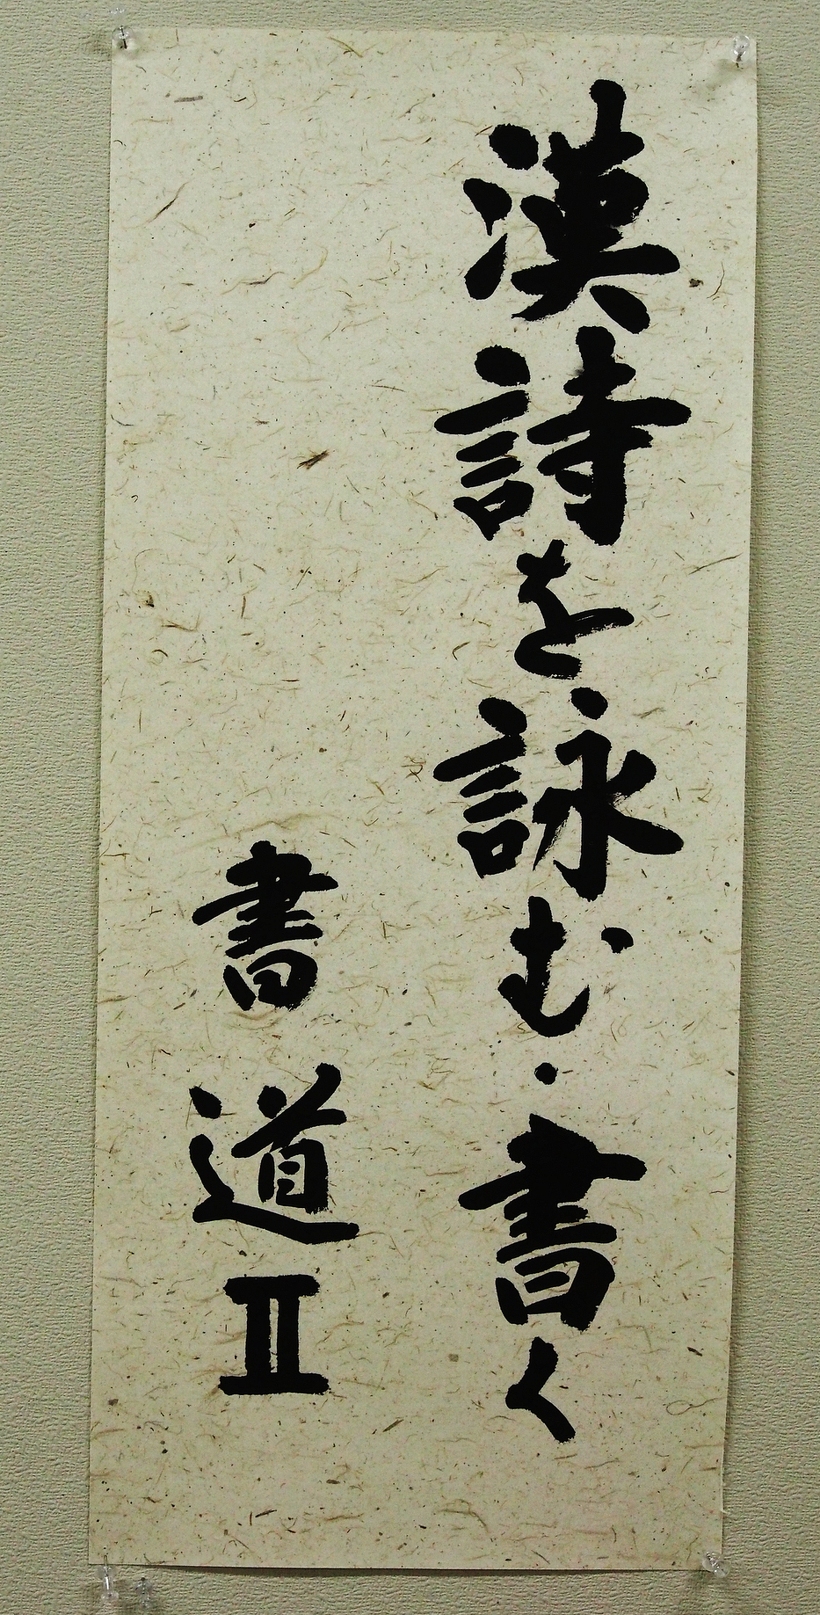 漢詩を詠む・書く
書道Ⅱ